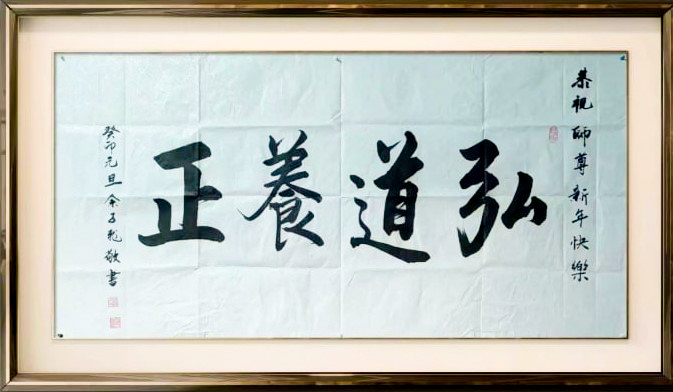 恭祝師尊新年快樂
弘道養正
癸卯元旦余子龍敬書